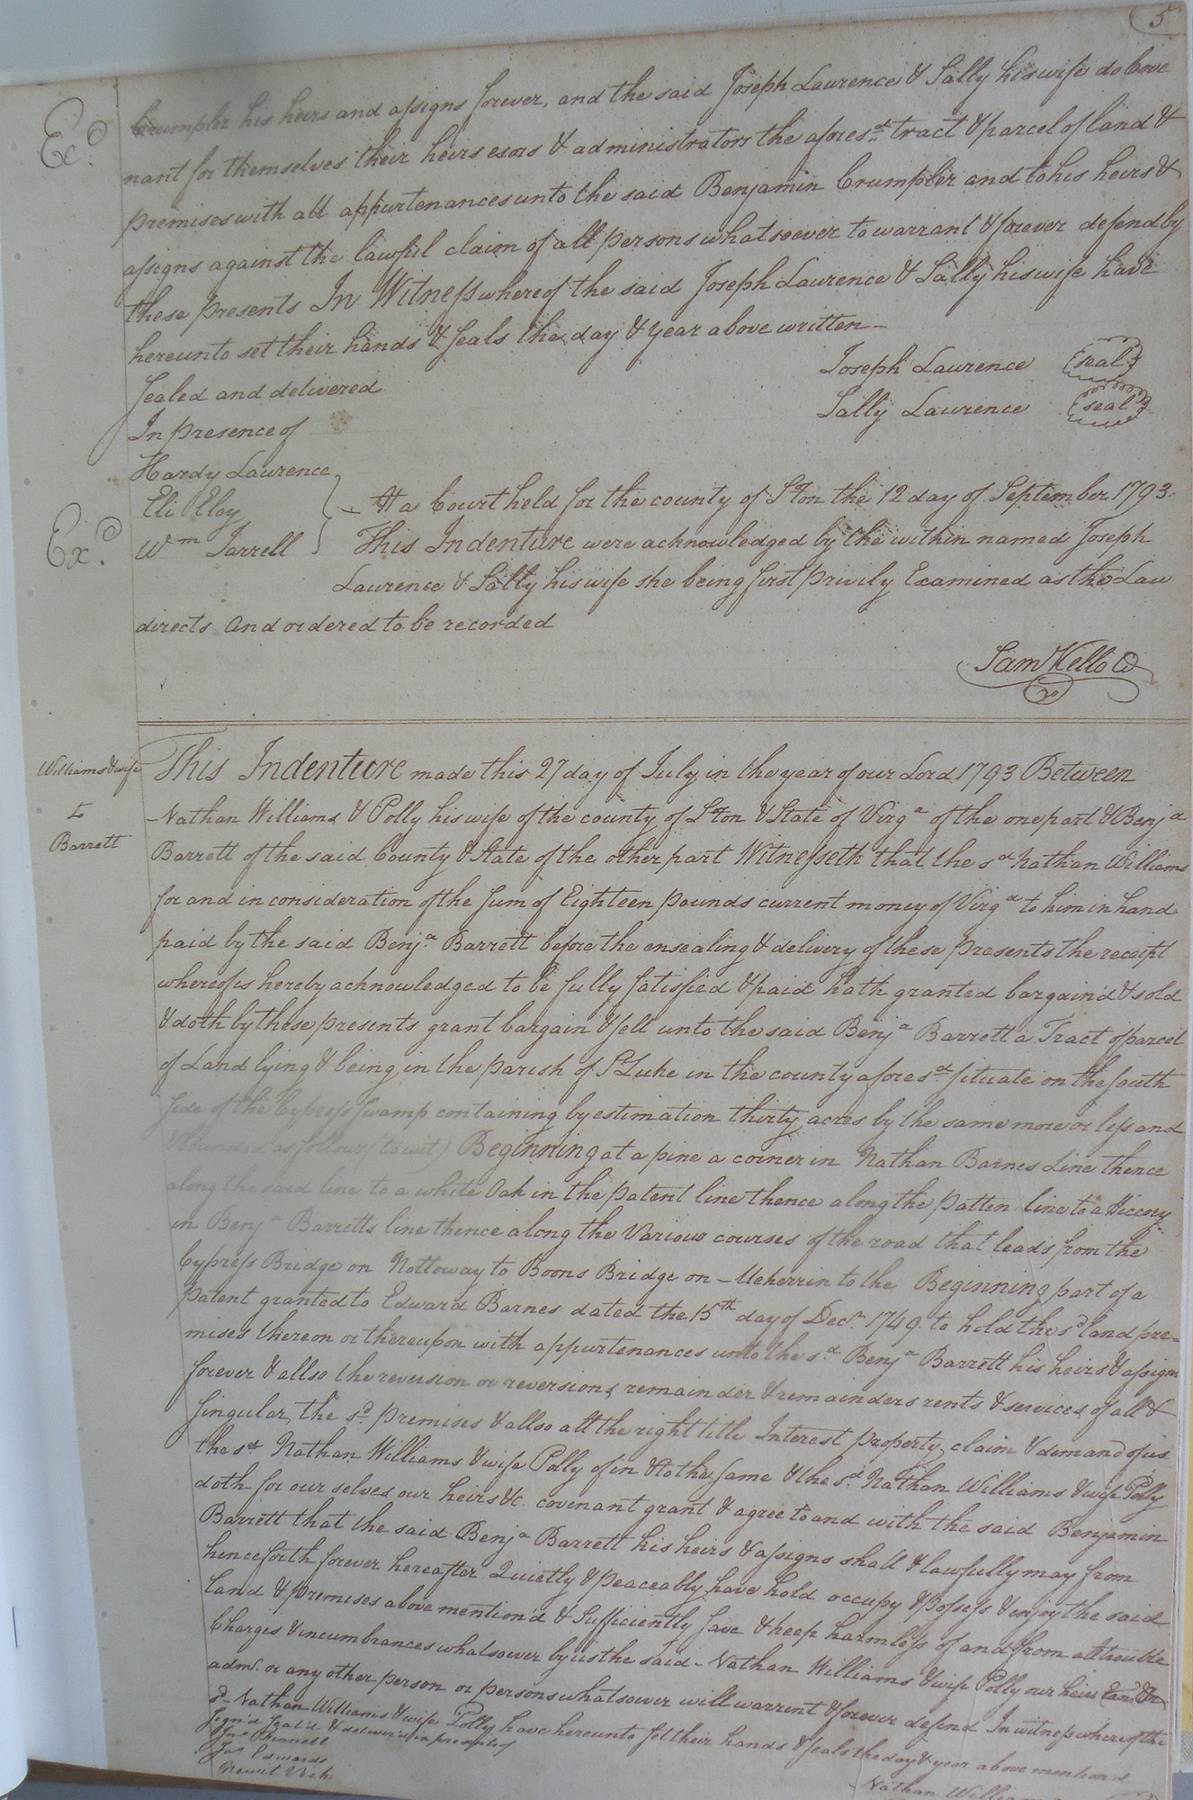 5
Crumpler his heirs and assigns forever, and the said Joseph Laurence & Sally his wife do Cove
Exd.
nant for themselves their heirs exors & administrators the aforesd. tract & parcel of land &
premises with all appurtenances unto the said Benjamin Crumpler and to his heirs &
assigns against the lawful claim of all persons whatsoever to warrant & forever defend by
these presents In Witness whereof the said Joseph Laurence & Sally his wife have
hereunto set their hands & seals the day & year above written
Joseph Laurence (seal)
Sealed and delivered
Sally Laurence (seal)
In presence of
Hardy Laurence
Eli Eley
At a Court held for the county of S.ton the 12 day of September 1793.
Exd.
Wm Jarrell
This Indenture were acknowledged by the within named Joseph
Laurence & Sally his wife she being first privily Examined as the Law
directs And ordered to be recorded
Sam Kello C
Williams & wife
to
Barrett
This Indenture made this 27 day of July in the year of our Lord 1793 Between
Nathan Williams & Polly his wife of the county of S.ton & State of Virga of the one part & Benja
Barrett of the said County & State of the other part Witnesseth that the sd Nathan Williams
for and in consideration of the Sum of Eighteen pounds current money of Virga to him in hand
paid by the said Benja. Barrett before the ensealing & delivery of these presents the receipt
whereof is hereby acknowledged to be fully satisfied & paid hath granted bargaind & sold
& doth by these presents grant bargain & sell unto the said Benja Barrett a Tract or parcel
of Land lying & being in the parish of St Luke in the county aforesd. situate on the South
side of the Cypress swamp containing by estimation thirty acres by the same more or less and
bounded as follows (to wit) Beginning at a pine a corner in Nathan Barnes Line thence
along the said line to a white Oak in the patent line thence along the patten line to a Hiccory
in Benja Barretts line thence along the Various courses of the road that leads from the
Cypress Bridge on Nottoway to Boons Bridge on Meherrin to the Beginning part of a
patent granted to Edward Barnes dated the 15th day of Decr. 1749. to hold the sd land pre-
mises thereon or thereupon with appurtenances unto the sd. Benja Barrett his heirs & assigns
forever & allso the reversion or reversions remainder & remainders rents & services of all &
singular the sd. premises & allso all the right title Interest property claim & demand of us
the sd Nathan Williams & wife Polly of in & to the same & the sd. Nathan Williams & wife Polly
doth for our selves our heirs &c. covenant grant & agree to and with the said Benjamin
Barrett that the said Benja Barrett his heirs & assigns shall & lawfully may from
henceforth forever hereafter Quietly & peaceably have hold occupy & possess & enjoy the said
land & premises above mention'd & Sufficiently save & keep harmless of and from all trouble
Charges & incumbrances whatsoever by us the said Nathan Williams & wife Polly our heirs
adms. or any other person or persons whatsoever will warrent & forever defend In witness whereof the
sd. Nathan Williams & wife Polly have hereunto set their hands & seals the day & year above mentiond
Sign'd seal'd & deliver'd in presents of
Nathan William
Edwards
Newit Vick